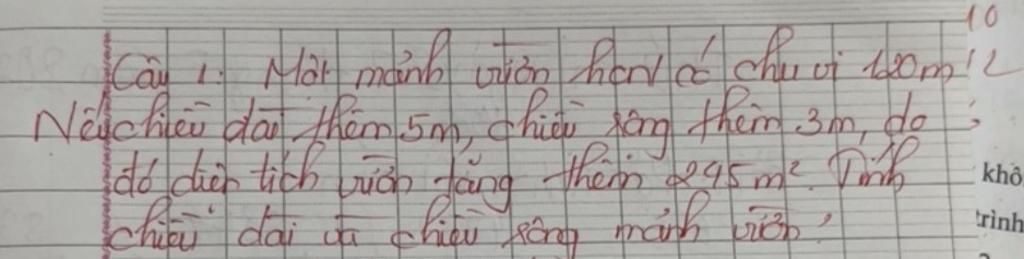 10
Câu 1: Một mảnh vườn hcn có chu vi 120m 12
Nếu chiều dài thêm 5m, chiều rộng thêm 3m, do
đó diện tích vườn tăng thêm 295m². Tính
khô
chiều dài và chiều rộng mảnh vườn?
trình